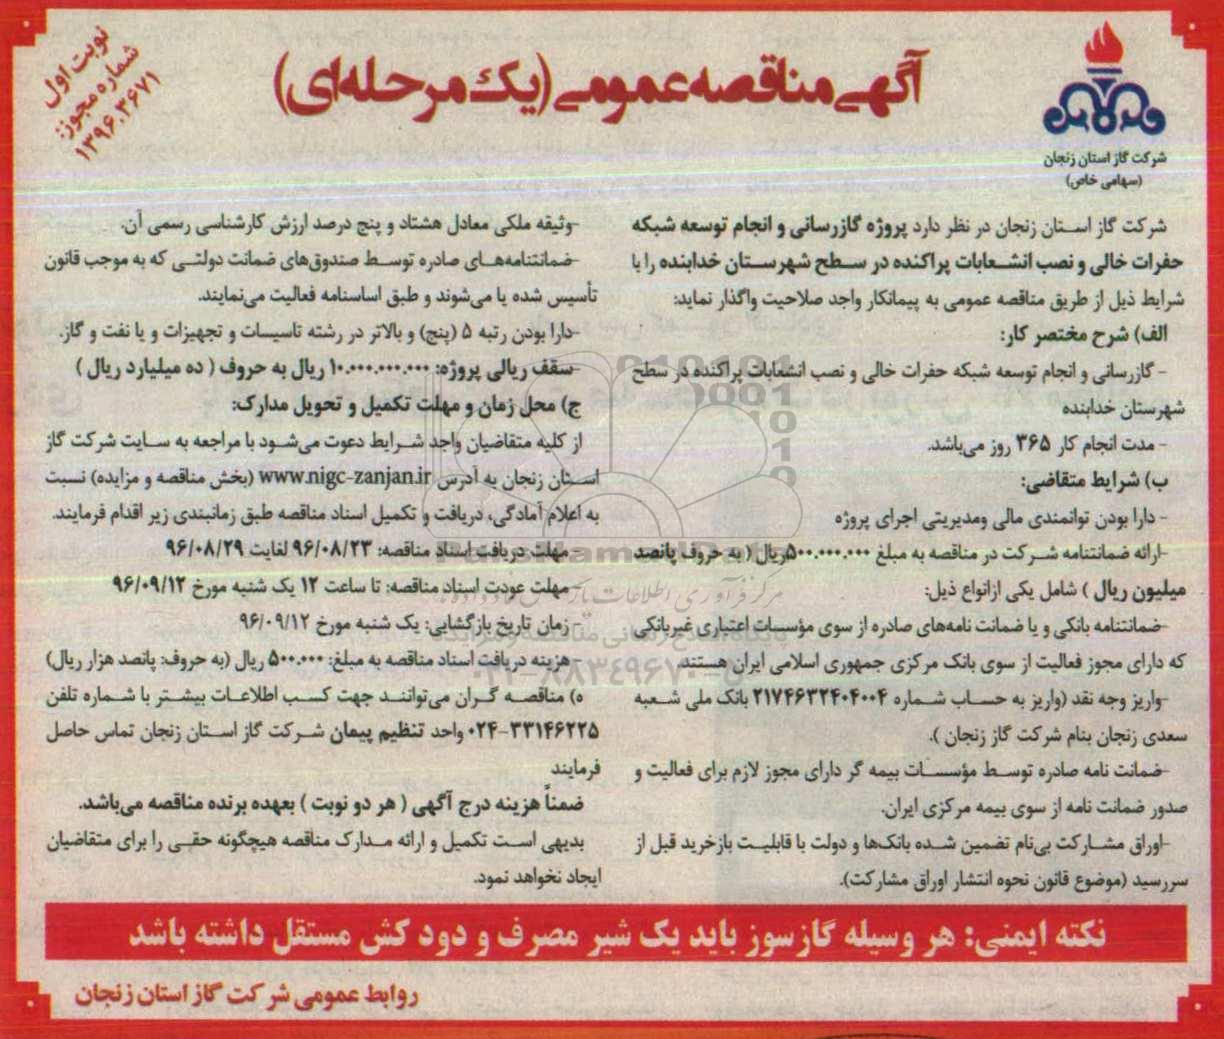 آگهی مناقصه عمومی (یک مرحله‌ای)
نوبت اول
شماره مجوز:
۱۳۹۶.۳۶۷۱
شرکت گاز استان زنجان
(سهامی خاص)
شرکت گاز استان زنجان در نظر دارد پروژه گازرسانی و انجام توسعه شبکه
حفرات خالی و نصب انشعابات پراکنده در سطح شهرستان خدابنده را با
شرایط ذیل از طریق مناقصه عمومی به پیمانکار واجد صلاحیت واگذار نماید:
الف) شرح مختصر کار:
- گازرسانی و انجام توسعه شبکه حفرات خالی و نصب انشعابات پراکنده در سطح
شهرستان خدابنده
- مدت انجام کار ۳۶۵ روز می‌باشد.
ب) شرایط متقاضی:
- دارا بودن توانمندی مالی ومدیریتی اجرای پروژه
-ارائه ضمانتنامه شرکت در مناقصه به مبلغ ۵۰۰.۰۰۰.۰۰۰ریال ( به حروف پانصد
میلیون ریال ) شامل یکی ازانواع ذیل:
-ضمانتنامه بانکی و یا ضمانت نامه‌های صادره از سوی مؤسسات اعتباری غیربانکی
که دارای مجوز فعالیت از سوی بانک مرکزی جمهوری اسلامی ایران هستند.
-واریز وجه نقد (واریز به حساب شماره ۲۱۷۴۶۳۲۴۰۴۰۰۴ بانک ملی شعبه
سعدی زنجان بنام شرکت گاز زنجان ).
-ضمانت نامه صادره توسط مؤسسات بیمه گر دارای مجوز لازم برای فعالیت و
صدور ضمانت نامه از سوی بیمه مرکزی ایران.
-اوراق مشارکت بی‌نام تضمین شده بانک‌ها و دولت با قابلیت بازخرید قبل از
سررسید (موضوع قانون نحوه انتشار اوراق مشارکت).
-وثیقه ملکی معادل هشتاد و پنج درصد ارزش کارشناسی رسمی آن.
-ضمانتنامه‌های صادره توسط صندوق‌های ضمانت دولتی که به موجب قانون
تأسیس شده یا می‌شوند و طبق اساسنامه فعالیت می‌نمایند.
-دارا بودن رتبه ۵ (پنج) و بالاتر در رشته تاسیسات و تجهیزات و یا نفت و گاز.
-سقف ریالی پروژه: ۱۰.۰۰۰.۰۰۰.۰۰۰ ریال به حروف ( ده میلیارد ریال )
ج) محل زمان و مهلت تکمیل و تحویل مدارک:
از کلیه متقاضیان واجد شرایط دعوت می‌شود با مراجعه به سایت شرکت گاز
استان زنجان به آدرس www.nigc-zanjan.ir (بخش مناقصه و مزایده) نسبت
به اعلام آمادگی، دریافت و تکمیل اسناد مناقصه طبق زمانبندی زیر اقدام فرمایند.
-مهلت دریافت اسناد مناقصه: ۹۶/۰۸/۲۳ لغایت ۹۶/۰۸/۲۹
-مهلت عودت اسناد مناقصه: تا ساعت ۱۲ یک شنبه مورخ ۹۶/۰۹/۱۲
- زمان تاریخ بازگشایی: یک شنبه مورخ ۹۶/۰۹/۱۲
-هزینه دریافت اسناد مناقصه به مبلغ: ۵۰۰.۰۰۰ ریال (به حروف: پانصد هزار ریال)
ه) مناقصه گران می‌توانند جهت کسب اطلاعات بیشتر با شماره تلفن
۰۲۴-۳۳۱۴۶۲۲۵ واحد تنظیم پیمان شرکت گاز استان زنجان تماس حاصل
فرمایند
ضمناً هزینه درج آگهی ( هر دو نوبت ) بعهده برنده مناقصه می‌باشد.
بدیهی است تکمیل و ارائه مدارک مناقصه هیچگونه حقی را برای متقاضیان
ایجاد نخواهد نمود.
نکته ایمنی: هر وسیله گازسوز باید یک شیر مصرف و دود کش مستقل داشته باشد
روابط عمومی شرکت گاز استان زنجان